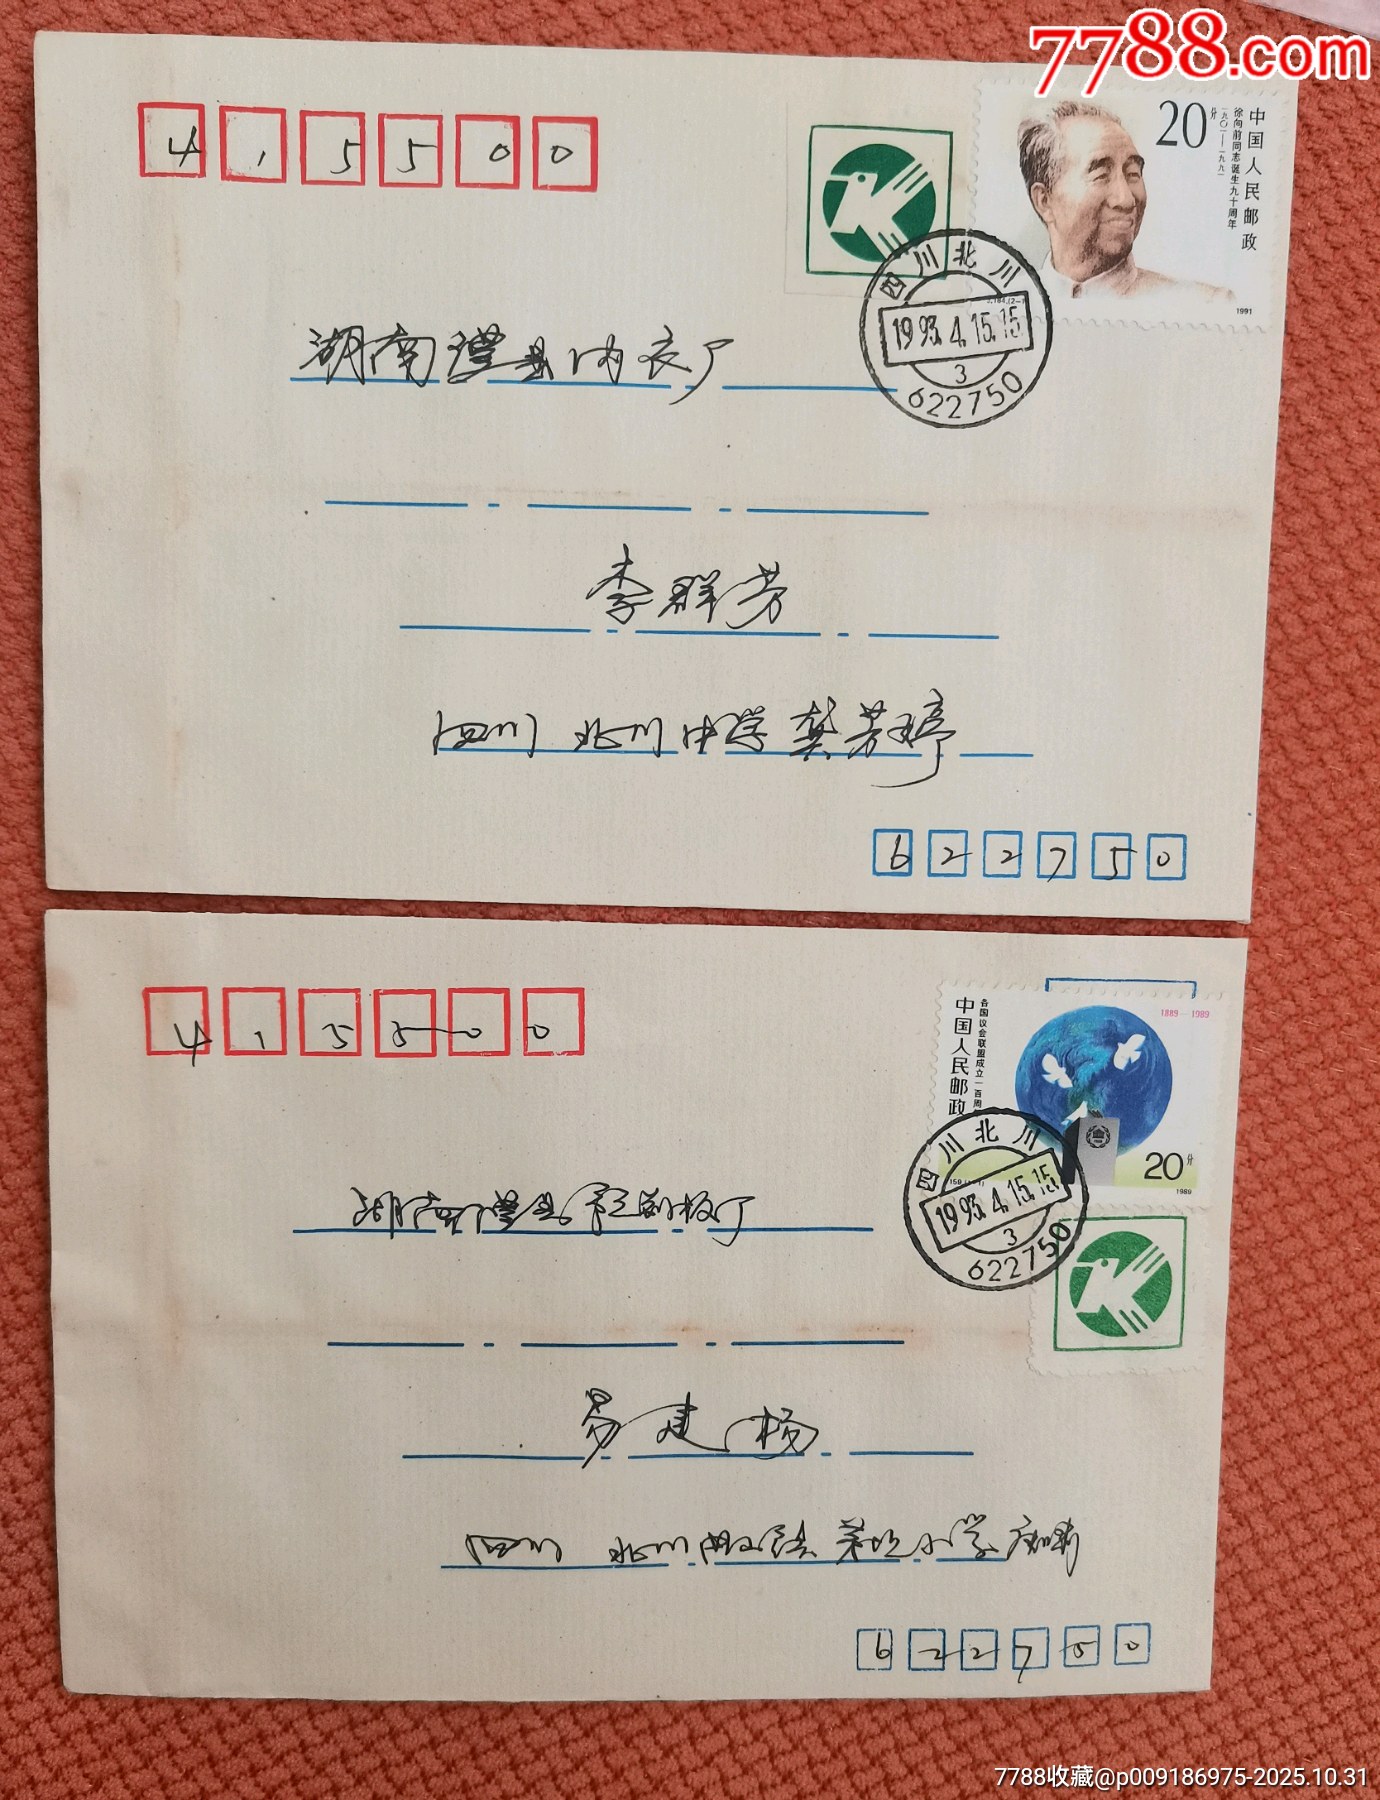 7788.com
4 1 5 5 0 0
20分
中国人民邮政
徐向前同志诞生九十周年
一九〇一—一九九一
1991
四川北川
1993.4.15.15
3
622750
湖南澧县内衣厂
李群芳
四川 北川 中学 龚芳婷
6 2 2 7 5 0
4 1 5 5 0 0
中国人民邮政
各国议会联盟成立一百周
1889-1989
20分
1989
四川北川
1993.4.15.15
3
622750
湖南澧县
易建杨
四川 北川 小学
6 2 2 7 5 0
7788收藏@p009186975-2025.10.31